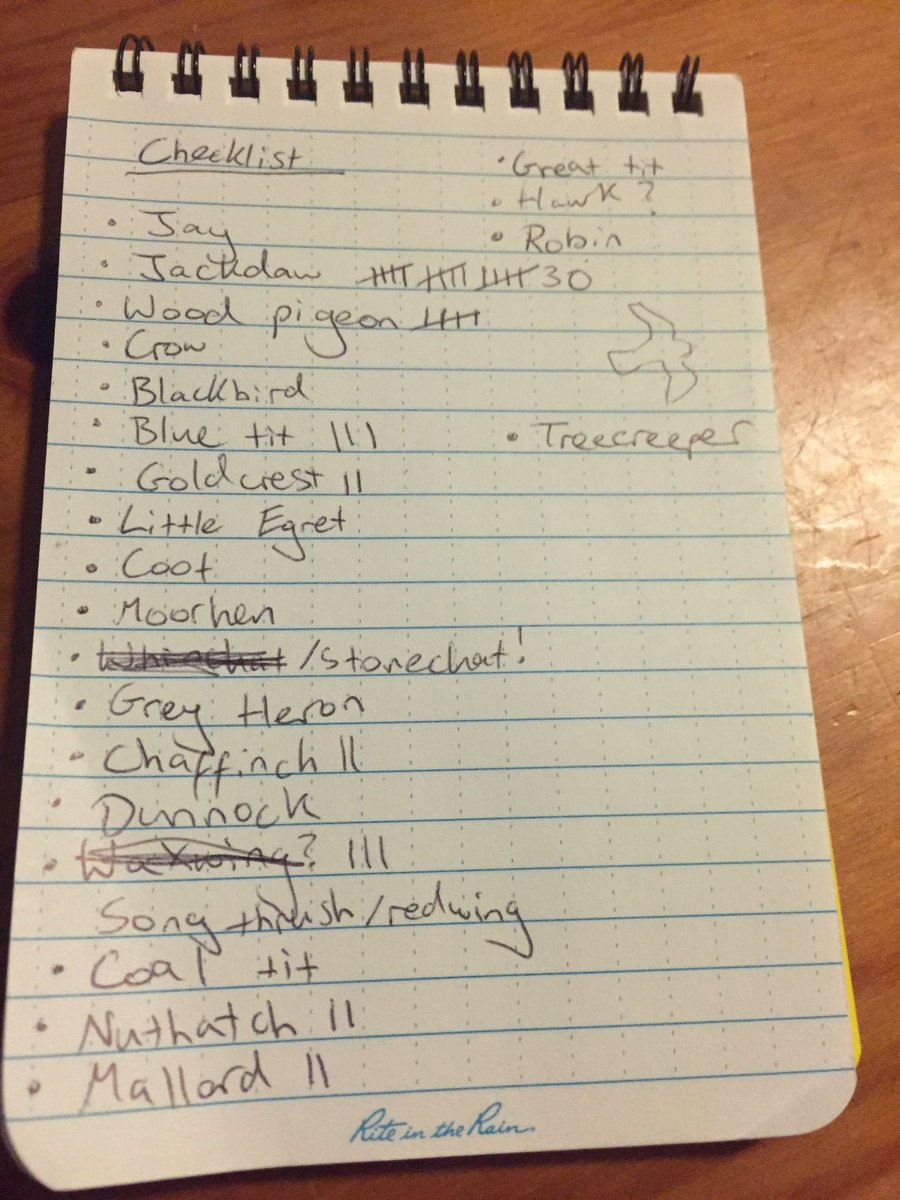 Checklist
• Jay
• Jackdaw 𝍸 𝍸 𝍸 30
• Wood pigeon 𝍸
• Crow
• Blackbird
• Blue tit III
Goldcrest II
• Little Egret
• Coot
• Moorhen
• Whinchat /stonechat!
• Grey Heron
• Chaffinch II
• Dunnock
• Waxwing? III
Song thrush/redwing
• Coal tit
• Nuthatch II
• Mallard II
• Great tit
• Hawk?
• Robin
• Treecreeper
Rite in the Rain.